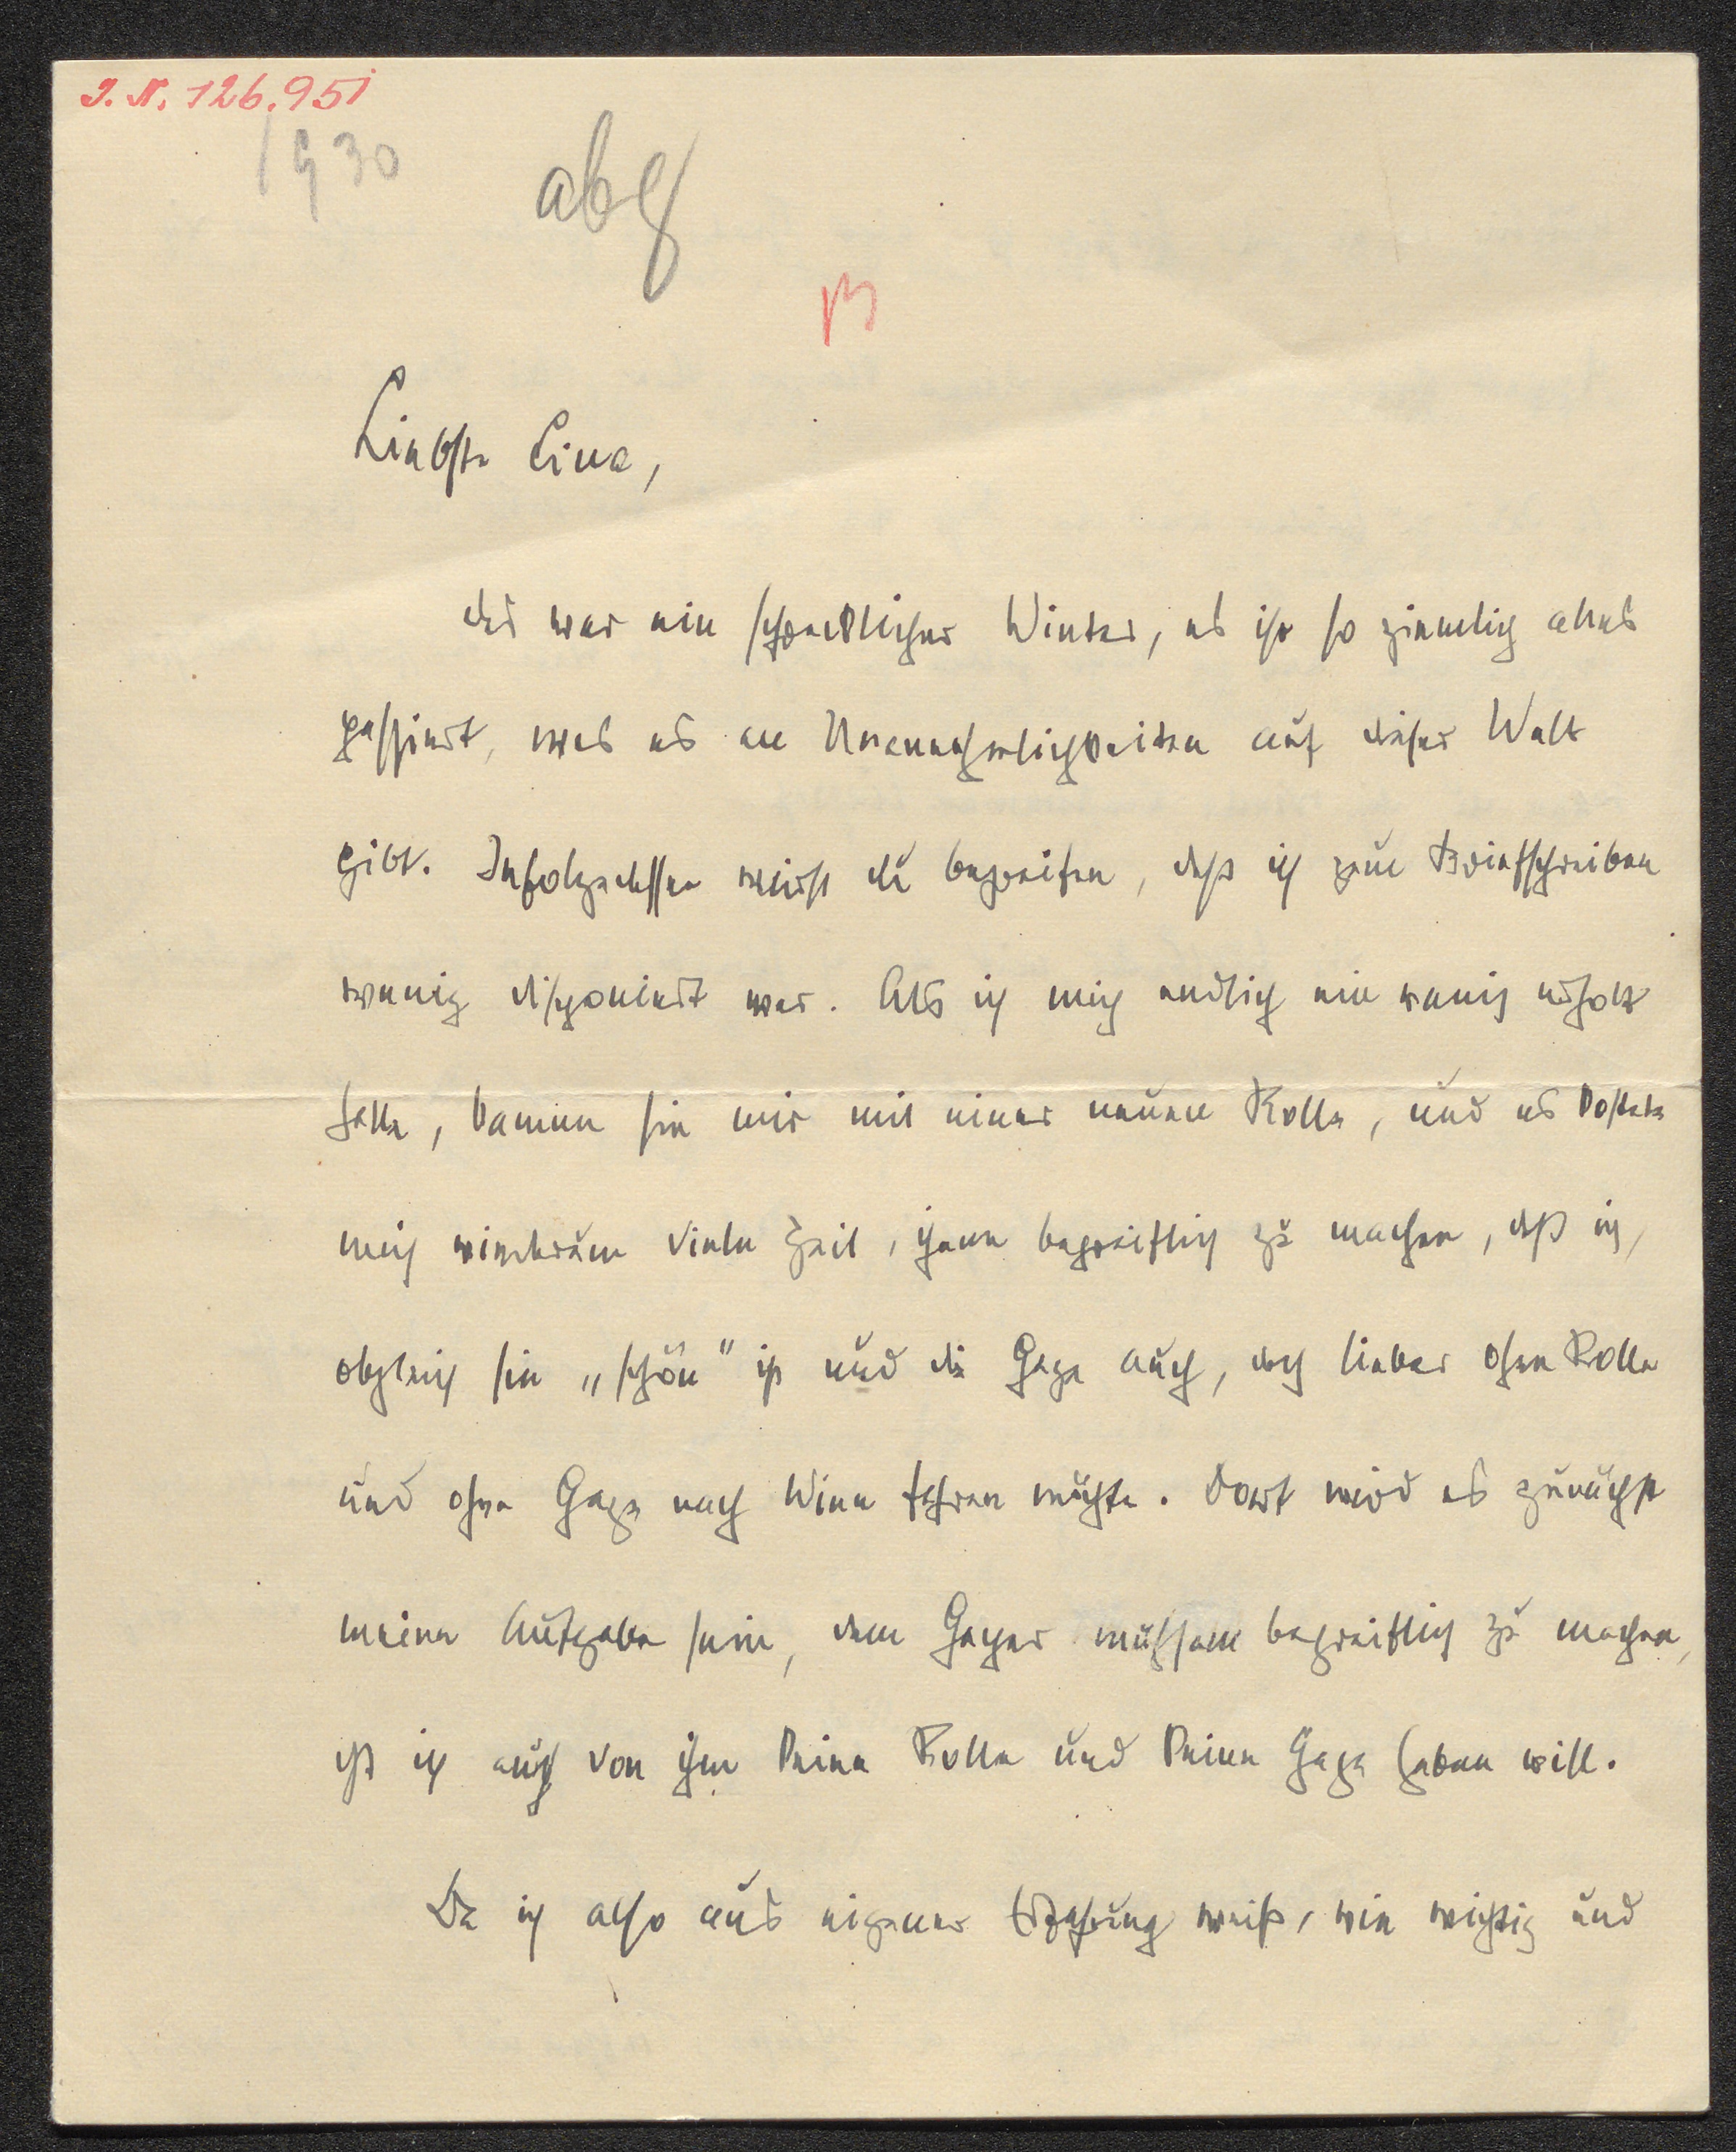 J. N. 126.951
1930
abg
Liebste Lina,
das war ein schrecklicher Winter, es ist so ziemlich alles
passiert, was es an Unannehmlichkeiten auf dieser Welt
gibt. Infolgedessen wirst du begreifen, daß ich zum Briefschreiben
wenig disponiert war. Als ich mich endlich ein wenig erholt
hatte, kamen sie mir mit einer neuen Rolle, und es kostete
mich wiederum viele Zeit, ihnen begreiflich zu machen, daß ich,
obgleich sie „schön" ist und die Gage auch, doch lieber ohne Rolle
und ohne Gage nach Wien fahren möchte. Dort wird es zunächst
meine Aufgabe sein, dem Geyer mühsam begreiflich zu machen,
daß ich auch von ihm keine Rolle und keine Gage haben will.
Da ich also aus eigener Erfahrung weiß, wie wichtig und